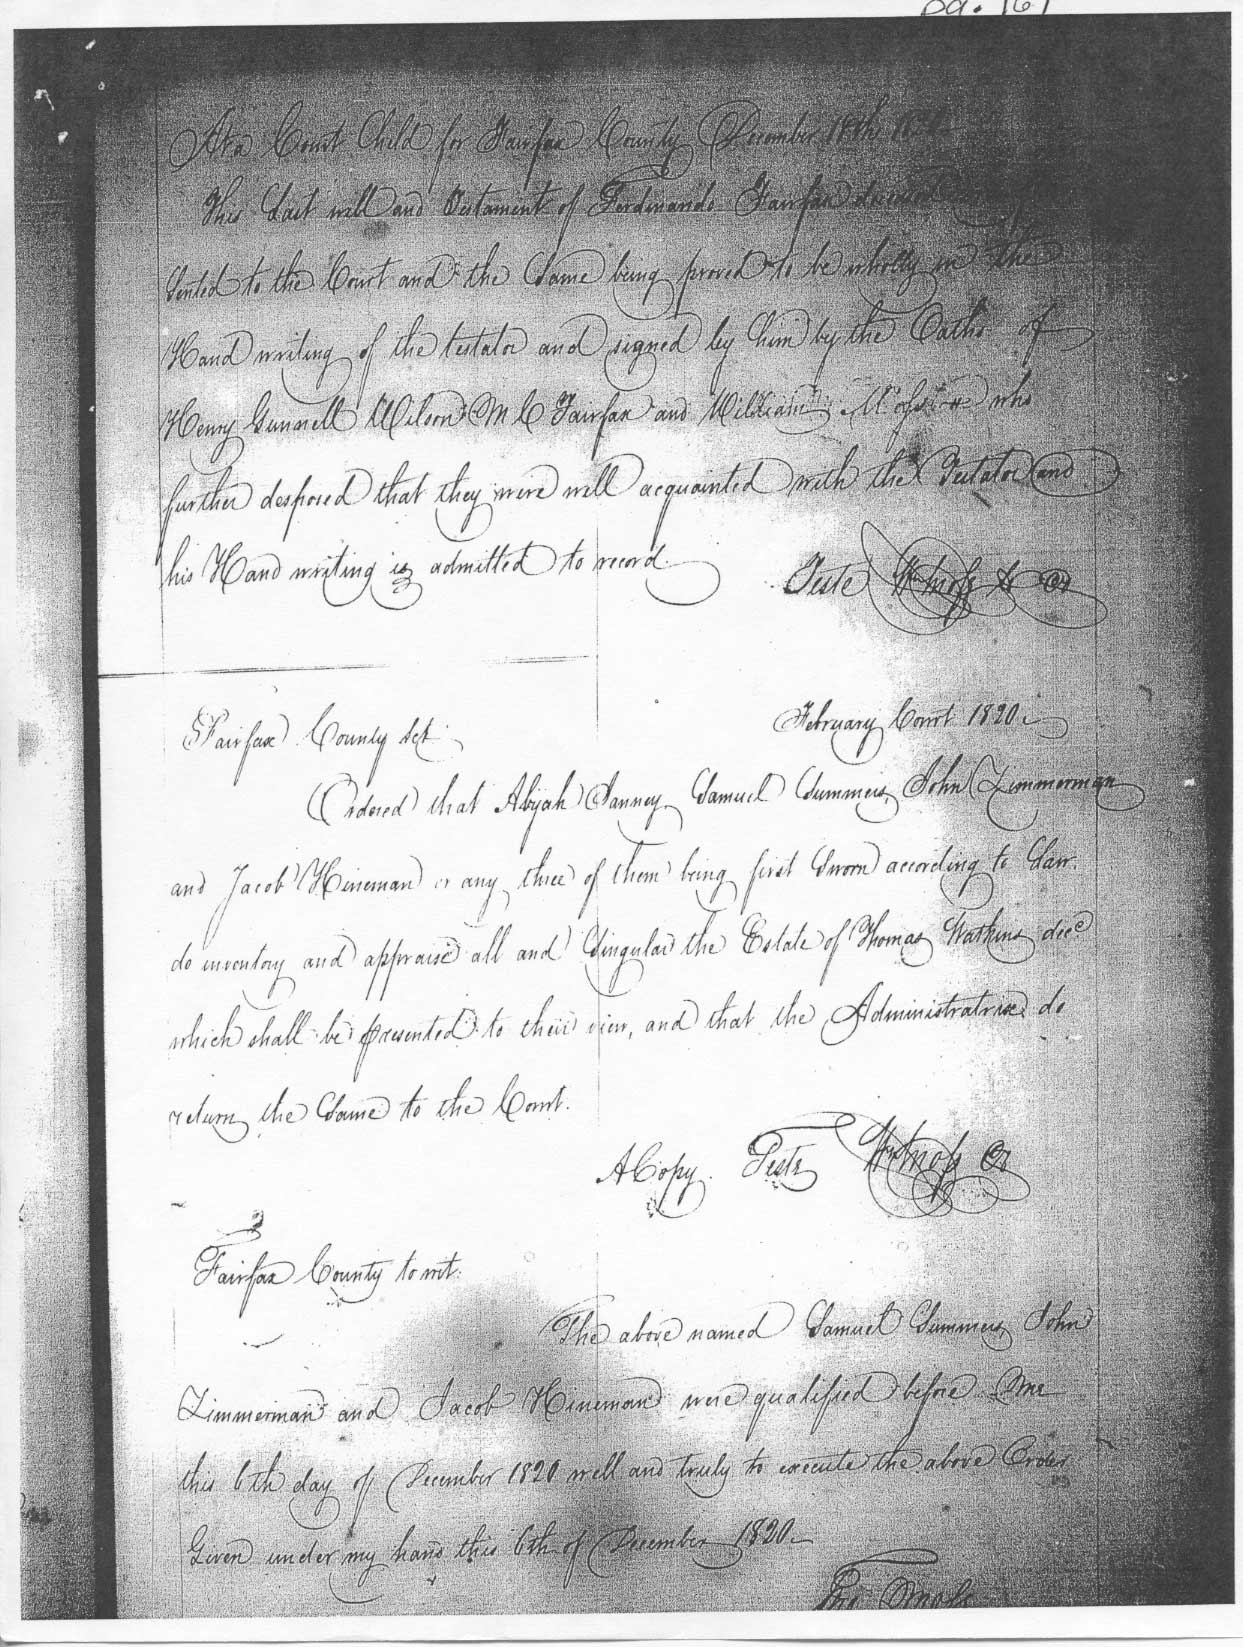 pg. 161
At a Court Held for Fairfax County December 18th
This Last will and Testament of Ferdinando Fairfax deceased
sented to the Court and the Same being proved to be wholly in the
Hand writing of the testator and signed by him by the Oaths of
Henry Gunnell Wilson M C Fairfax and William Moss who
further desposed that they were well acquainted with the Testator and
his Hand writing is admitted to record.
Teste Wm Moss Cl
February Court 1820
Fairfax County Sct
Ordered that Abijah Janney Samuel Summers, John Zimmerman
and Jacob Hineman or any three of them being first Sworn according to Law
do inventory and appraise all and Singular the Estate of Thomas Watkins decd
which shall be presented to their view, and that the Administratrix do
return the Same to the Court.
A Copy. Teste Wm Moss Cl
Fairfax County to wit.
The above named Samuel Summers John
Zimmerman and Jacob Hineman were qualified before me
this 6th day of December 1820 well and truly to execute the above Order
Given under my hand this 6th of December 1820
Tho Moss